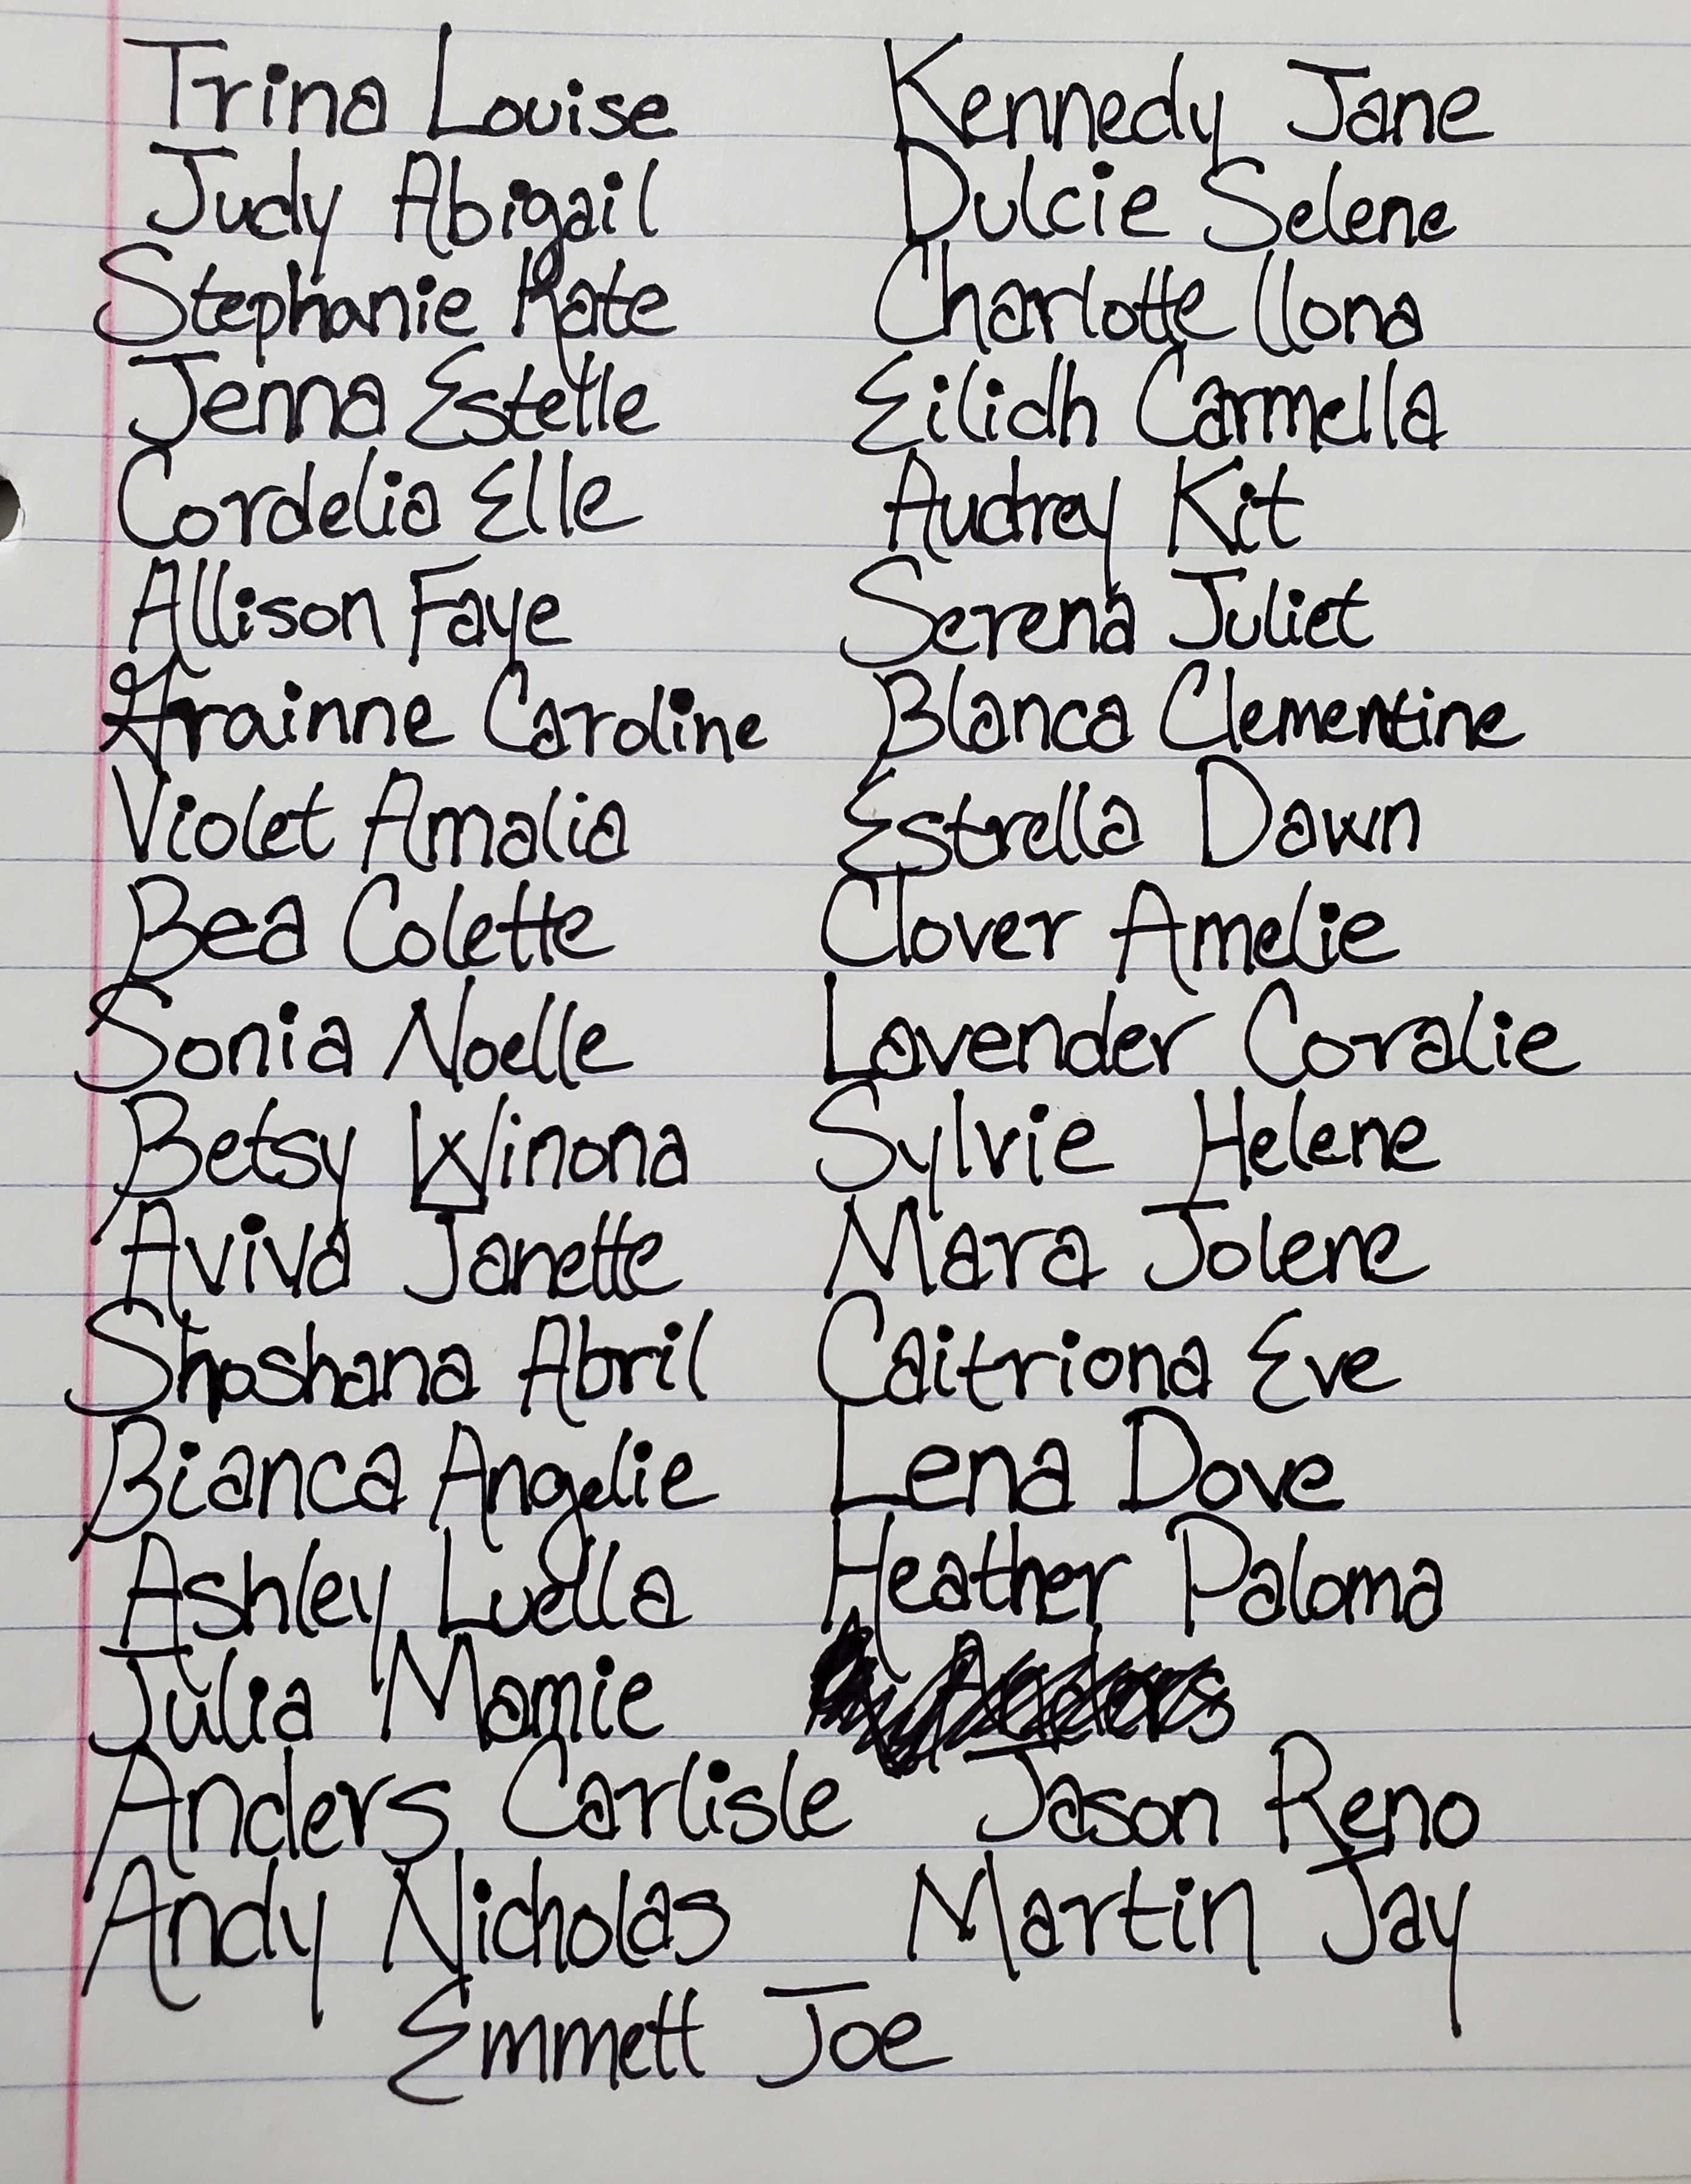 Trina Louise Kennedy Jane
Judy Abigail Dulcie Selene
Stephanie Kate Charlotte Ilona
Jenna Estelle Eilidh Carmella
Cordelia Elle Audrey Kit
Allison Faye Serena Juliet
Grainne Caroline Blanca Clementine
Violet Amalia Estrella Dawn
Bea Colette Clover Amelie
Sonia Noelle Lavender Coralie
Betsy Winona Sylvie Helene
Aviva Janette Mara Jolene
Shoshana Abril Caitriona Eve
Bianca Angelie Lena Dove
Ashley Luella Heather Paloma
Julia Mamie
Anders Carlisle Jason Reno
Andy Nicholas Martin Jay
Emmett Joe